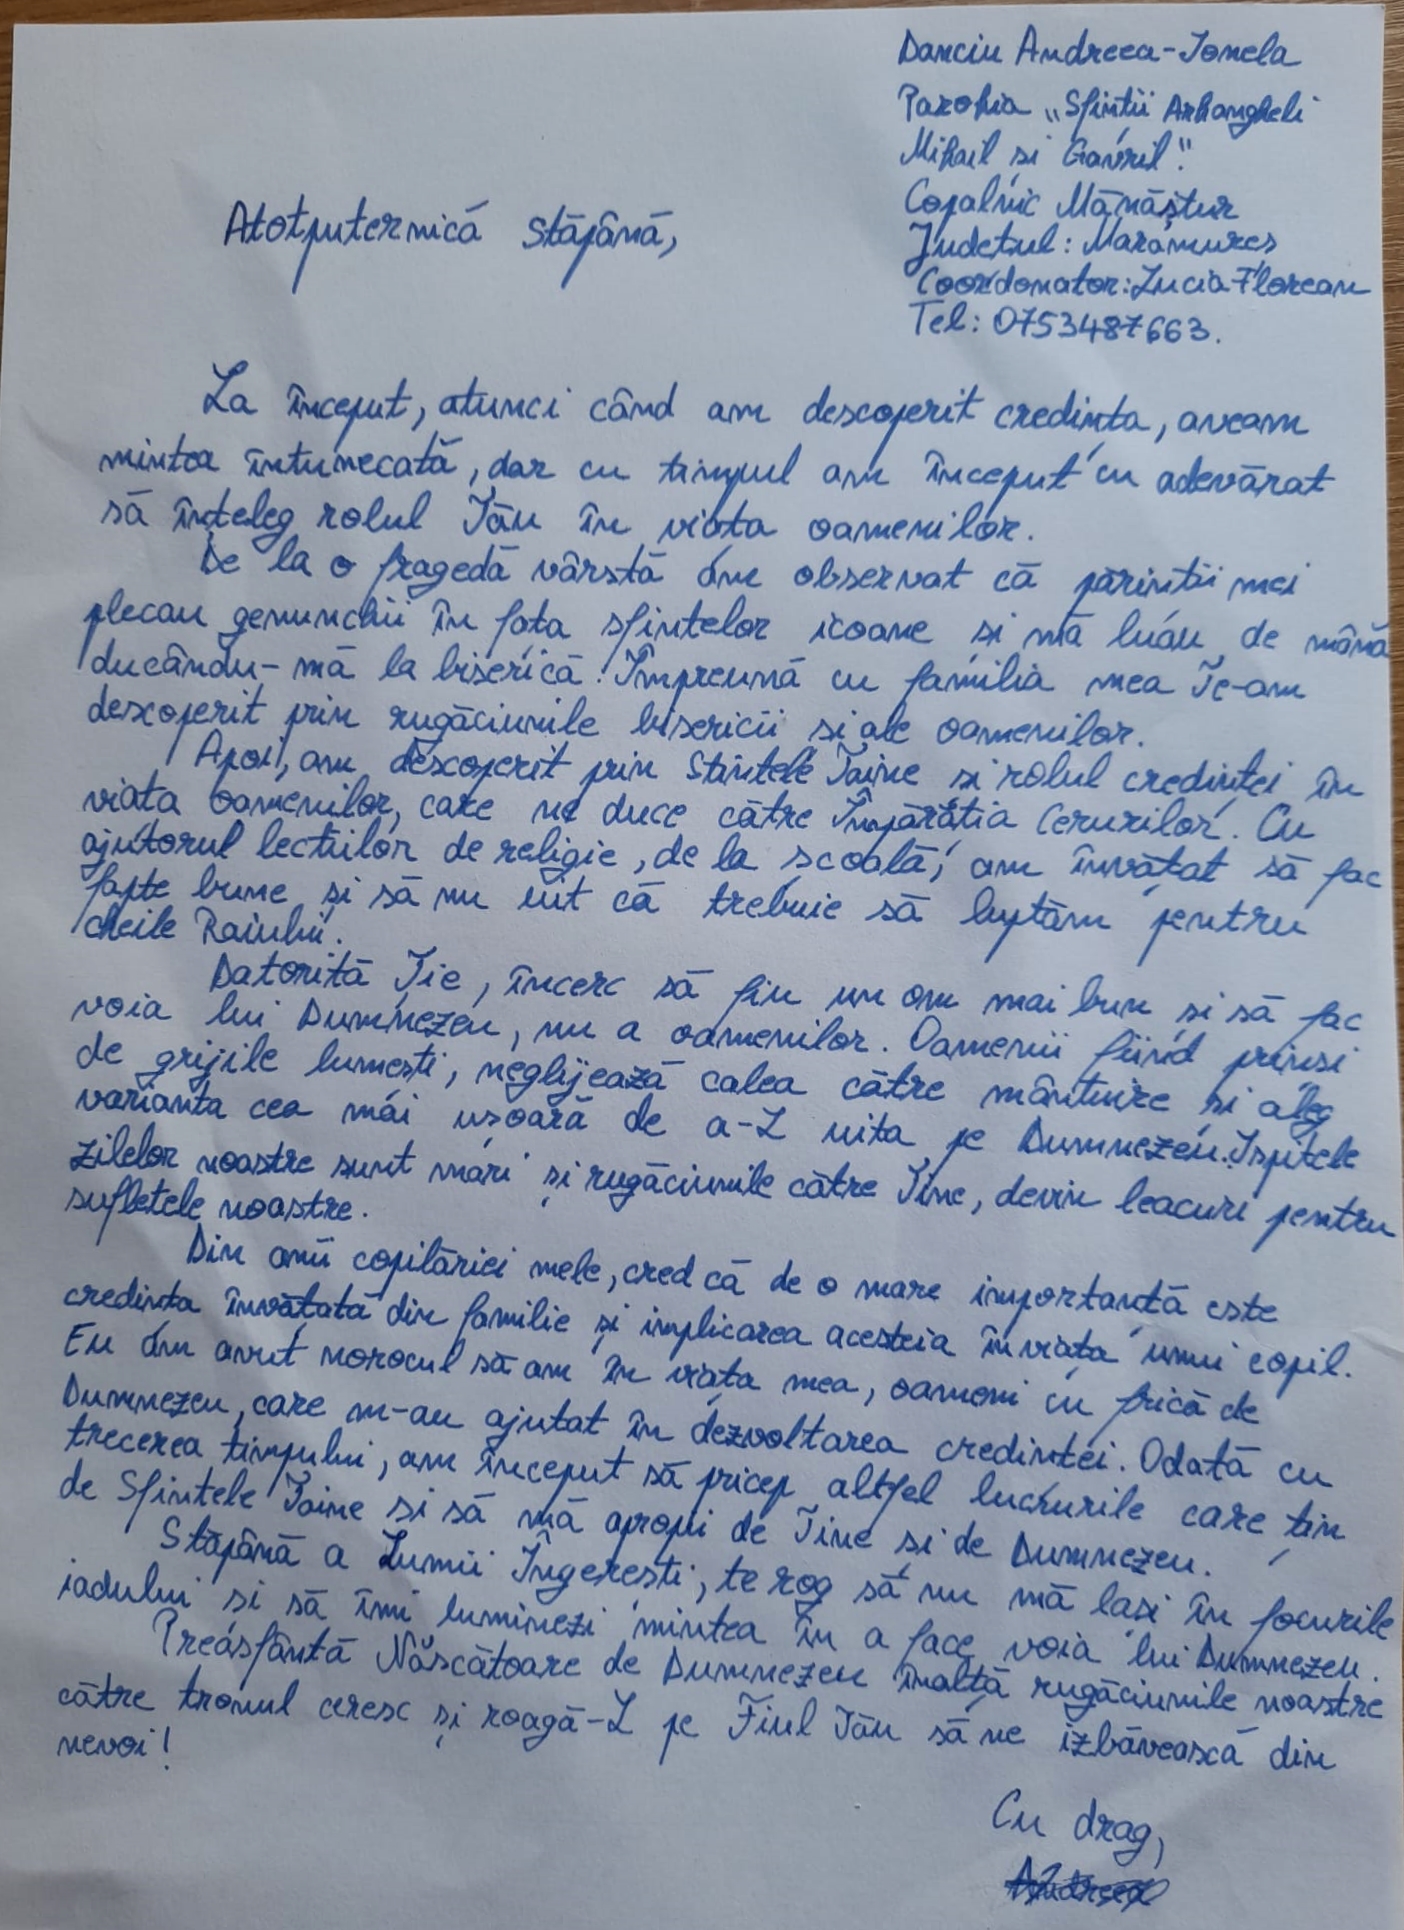 Danciu Andreea-Ionela
Parohia „Sfinții Arhangheli
Mihail și Gavril".
Copalnic Mănăștur
Județul: Maramureș
Coordonator: Lucia Florean
Tel: 0753487663.
Atotputernică Stăpână,
La început, atunci când am descoperit credința, aveam
mintea întunecată, dar cu timpul am început cu adevărat
să înțeleg rolul Tău în viața oamenilor.
De la o fragedă vârstă am observat că părinții mei
plecau genunchii în fața sfintelor icoane și mă luau de mână
ducându-mă la biserică. Împreună cu familia mea Te-am
descoperit prin rugăciunile bisericii și ale oamenilor.
Apoi, am descoperit prin Sfintele Taine și rolul credinței în
viața oamenilor, care ne duce către Împărăția Cerurilor. Cu
ajutorul lecțiilor de religie, de la școală, am învățat să fac
fapte bune și să nu uit că trebuie să luptăm pentru
cheile Raiului.
Datorită Ție, încerc să fiu un om mai bun și să fac
voia lui Dumnezeu, nu a oamenilor. Oamenii fiind prinși
de grijile lumești, neglijează calea către mântuire și aleg
varianta cea mai ușoară de a-L uita pe Dumnezeu. Ispitele
zilelor noastre sunt mari și rugăciunile către Tine, devin leacuri pentru
sufletele noastre.
Din anii copilăriei mele, cred că de o mare importanță este
credința învățată din familie și implicarea acesteia în viața unui copil.
Eu am avut norocul să am în viața mea, oameni cu frică de
Dumnezeu, care m-au ajutat în dezvoltarea credinței. Odată cu
trecerea timpului, am început să pricep altfel lucrurile care țin
de Sfintele Taine și să mă apropii de Tine și de Dumnezeu.
Stăpână a Lumii Îngerești, te rog să nu mă lași în focurile
iadului și să îmi luminezi mintea în a face voia lui Dumnezeu.
Preasfântă Născătoare de Dumnezeu înalță rugăciunile noastre
către tronul ceresc și roagă-L pe Fiul Tău să ne izbăvească din
nevoi!
Cu drag,